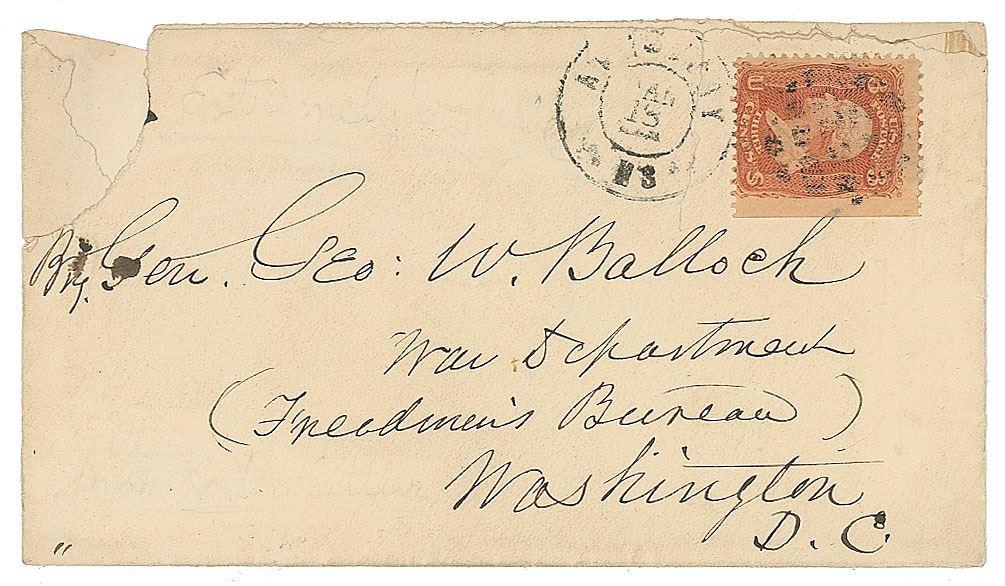 N.H.
U.S. POSTAGE
THREE CENTS
3 3
U S
By. Gen. Geo: W. Balloch
War Department
(Freedmen's Bureau)
Washington
D. C.
"